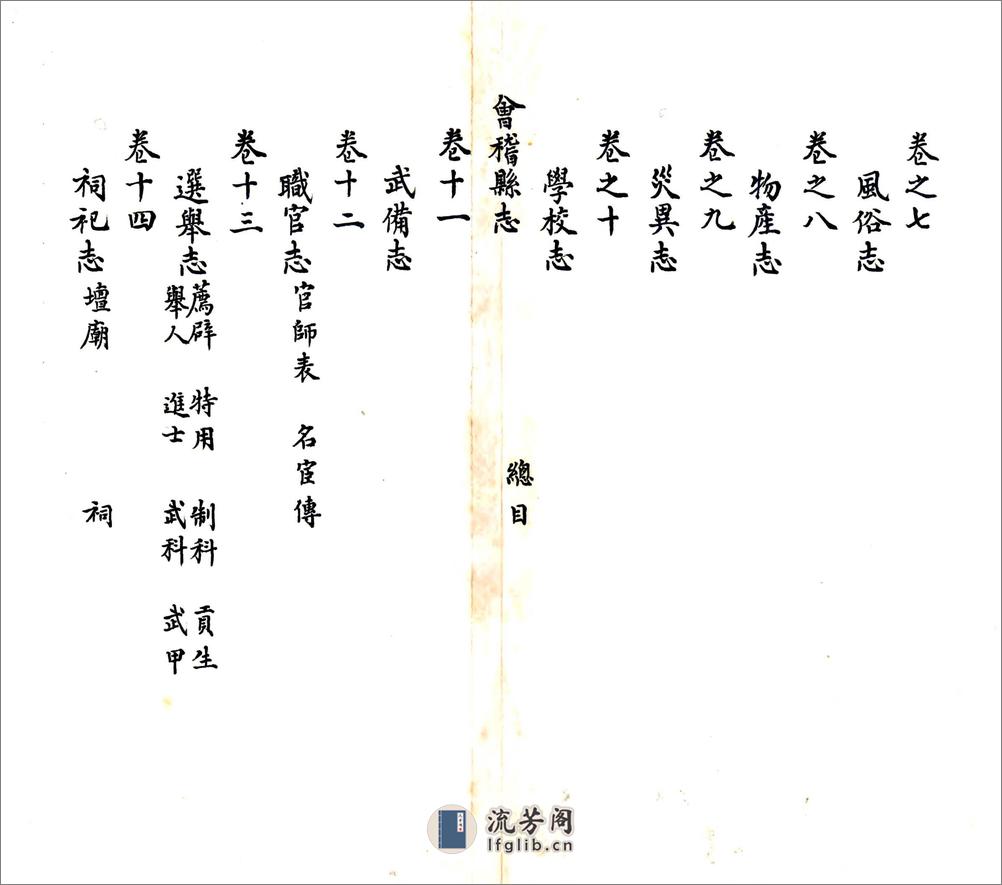 卷之七
風俗志
卷之八
物產志
卷之九
災異志
卷之十
學校志
會稽縣志 總目
卷十一
武備志
卷十二
職官志 官師表 名宦傳
卷十三
選舉志 薦辟 特用 制科 貢生
舉人 進士 武科 武甲
卷十四
祠祀志 壇廟 祠
流芳阁
lfglib.cn